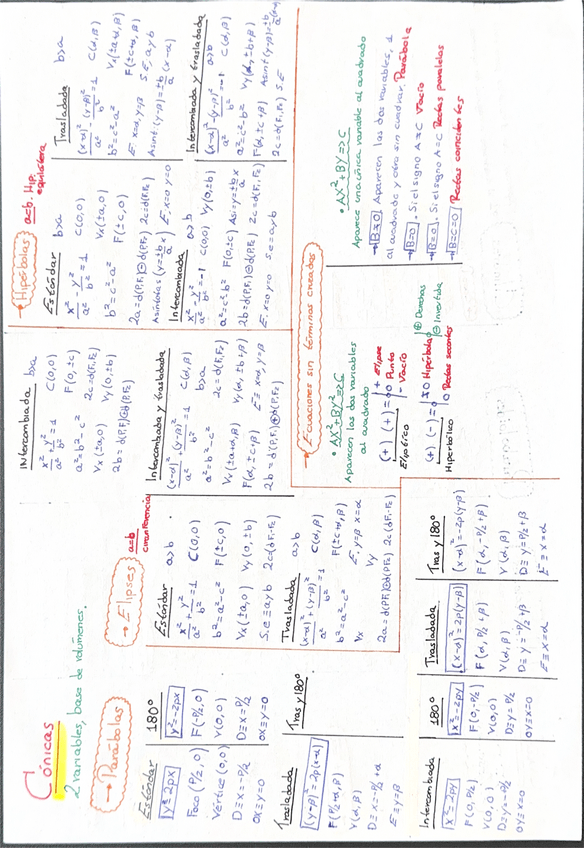 Cónicas
2 variables, base de volúmenes.
→ Parábolas
Estándar
y²=2px
Foco (P/2, 0)
Vértice (0,0)
D≡x=-P/2
OX≡y=0
180°
y²=-2px
F(-P/2, 0)
V(0,0)
D≡x=P/2
OX≡y=0
Trasladada
(y-β)²=2p(x-α)
F(P/2+α, β)
V(α, β)
D≡x=-P/2+α
E≡y=β
Tras y 180°
Intercambiada
X²=2py
F(0, P/2)
V(0,0)
D≡y=-P/2
OY≡x=0
180°
X²=-2py
F(0,-P/2)
V(0,0)
D≡y=P/2
OY≡x=0
Trasladada
(x-α)²=2p(y-β)
F(α, P/2+β)
V(α, β)
D≡y=-P/2+β
E≡x=α
Tras y 180°
(x-α)²=-2p(y-β)
F(α,-P/2+β)
V(α, β)
D≡y=P/2+β
E≡x=α
→ Elipses
a=b
circunferencia
Estándar a>b
x²/a² + y²/b² = 1 C(0,0)
b²=a²-c² F(±c,0)
Vx(±a,0) Vy(0,±b)
S.e≡a y b
Trasladada a>b
(x-α)²/a² + (y-β)²/b² = 1 C(α,β)
b²=a²-c² F(±c+α,β)
Vx E, y=β x=α
Vy
INtercambiada b>a
x²/a² + y²/b² = 1 C(0,0)
a²=b²-c² F(0,±c)
Vx(±a,0) Vy(0,±b)
Intercambiada y trasladada
(x-α)²/a² + (y-β)²/b² = 1 C(α,β)
a²=b²-c² b>a
Vx(±a+α,β) Vy(α,±b+β)
F(α,±c+β) E≡ x=α, y=β
→ Hipérbolas
a=b. Hip.
equilátera
Estándar b>a
x²/a² - y²/b² = 1 C(0,0)
Vx(±a,0)
b²=c²-a² F(±c,0)
E, x=0 y=0
Intercambiada a>b
x²/a² - y²/b² = -1 C(0,0) Vy(0,±b)
a²=c²-b² F(0,±c)
E, x=0 y=0 s.e=a y b
Trasladada b>a
(x-α)²/a² - (y-β)²/b² = 1 C(α,β)
Vx(±a+α,β)
b²=c²-a² F(±c+α,β)
E x=α, y=β S.E, a y b
Asint.(y-β)=±b/a (x-α)
Intercambiada y trasladada
a>b
(x-α)²/a² - (y-β)²/b² = -1 C(α,β)
a²=c²-b² Vy(α,±b+β)
F(α,±c+β)
→ Ecuaciones sin términos cruzados
• AX²+BY²=>C
Aparecen las dos variables
al cuadrado
(+) (+)=
+ Elipse
0 Punto
- Vacío
Elíptico
(+) (-)=
≠0 Hipérbola
0 Rectas secantes
⊕ Derechas
⊖ Invertida
Hiperbólico
• AX²+BY=>C
Aparece una única variable al cuadrado
→ B≠0 Aparecen las dos variables, 1
al cuadrado y otro sin cuadrar, Parábola
→ B=0, Si el signo A≠C Vacío
→ B=0, Si el signo A=C Rectas paralelas
→ B=C=0 Rectas coincidentes